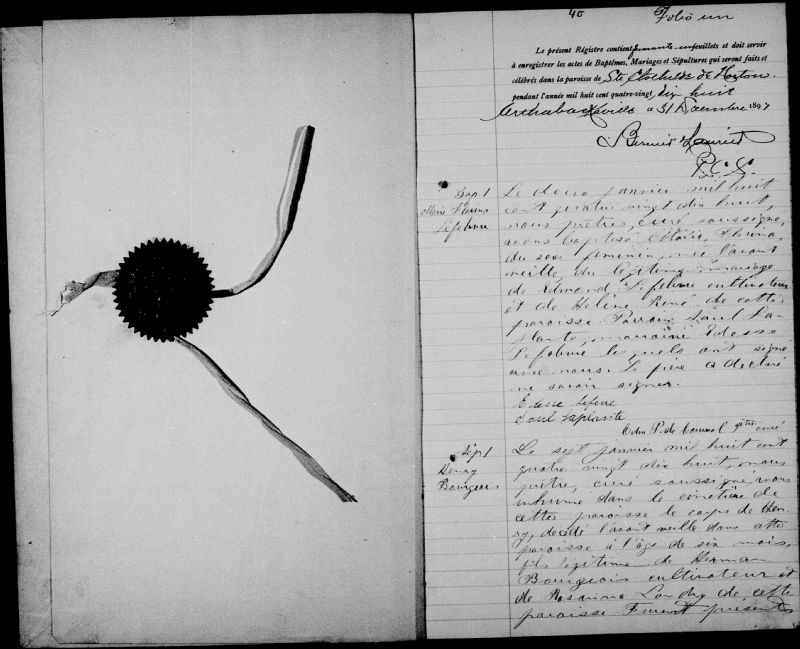 40 Folio un
Le présent Régistre contient feuillets et doit servir
à enregistrer les actes de Baptêmes, Mariages et Sépultures qui seront faits et
célébrés dans la paroisse de Ste Clothilde de Horton
pendant l'année mil huit cent quatre-vingt dix huit
Arthabaskaville 31 Décembre 1897
P.C.S.
Bap 1
Marie Florina
Lefebvre
Le deux janvier mil huit
cent quatre vingt dix huit,
nous prêtre, curé soussigné,
avons baptisé Marie, Florina,
du sexe féminin, née l'avant
veille, du légitime mariage
de Edmond Lefebvre cultivateur
et de Héline René de cette
paroisse. Parrain Paul La-
plante, marraine Edesse
Lefebvre les quels ont signé
avec nous. Le père a déclaré
ne savoir signer.
Edesse Lefevre
Paul Laplante
ptre curé
Sép 1
Henry
Bourgeois
Le sept janvier mil huit cent
quatre vingt dix huit, nous
prêtre, curé soussigné, avons
inhumé dans le cimetière de
cette paroisse le corps de Hen-
ry, décédé l'avant veille dans cette
paroisse à l'âge de six mois,
fils légitime de Herman
Bourgeois cultivateur et
de Rosanna Landry de cette
paroisse. Furent présents